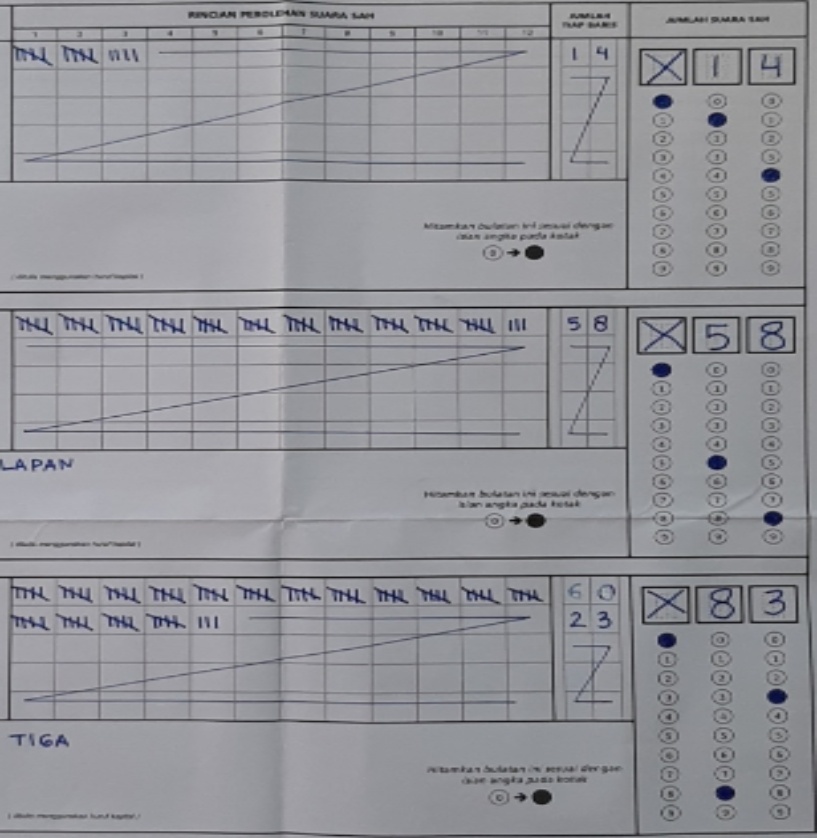 RINCIAN PEROLEHAN SUARA SAH
JUMLAH TIAP BARIS
JUMLAH SUARA SAH
1 2 3 4 5 6 7 8 9 10 11 12
1 4
X 1 4
Hitamkan bulatan ini sesuai dengan
isian angka pada kotak
0 → ●
(ditulis menggunakan huruf kapital)
5 8
X 5 8
LAPAN
Hitamkan bulatan ini sesuai dengan
isian angka pada kotak
0 → ●
(ditulis menggunakan huruf kapital)
6 0
2 3
X 8 3
TIGA
Hitamkan bulatan ini sesuai dengan
isian angka pada kotak
0 → ●
(ditulis menggunakan huruf kapital)